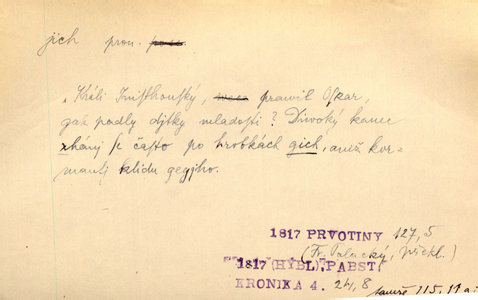 jich pron.
„Králi Inisthonský, prawil Oskar,
gak padly djtky mladosti? Diwoký kanec
zhánj se často po hrobkách gich, aniž kor=
mautj klidu gegjho.
1817 PRVOTINY 127,5
(Fr. Palacký, překl.)
1817 (HÝBL), PABST,
KRONIKA 4. 24,8
tamže 115.11 a j.